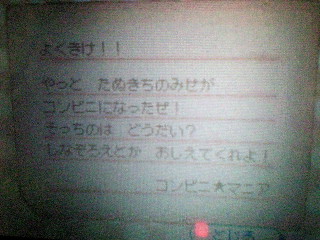 よくきけ！！
やっと　たぬきちのみせが
コンビニになったぜ！
そっちのは　どうだい？
しなぞろえとか　おしえてくれよ！
コンビニ★マニア
とじる